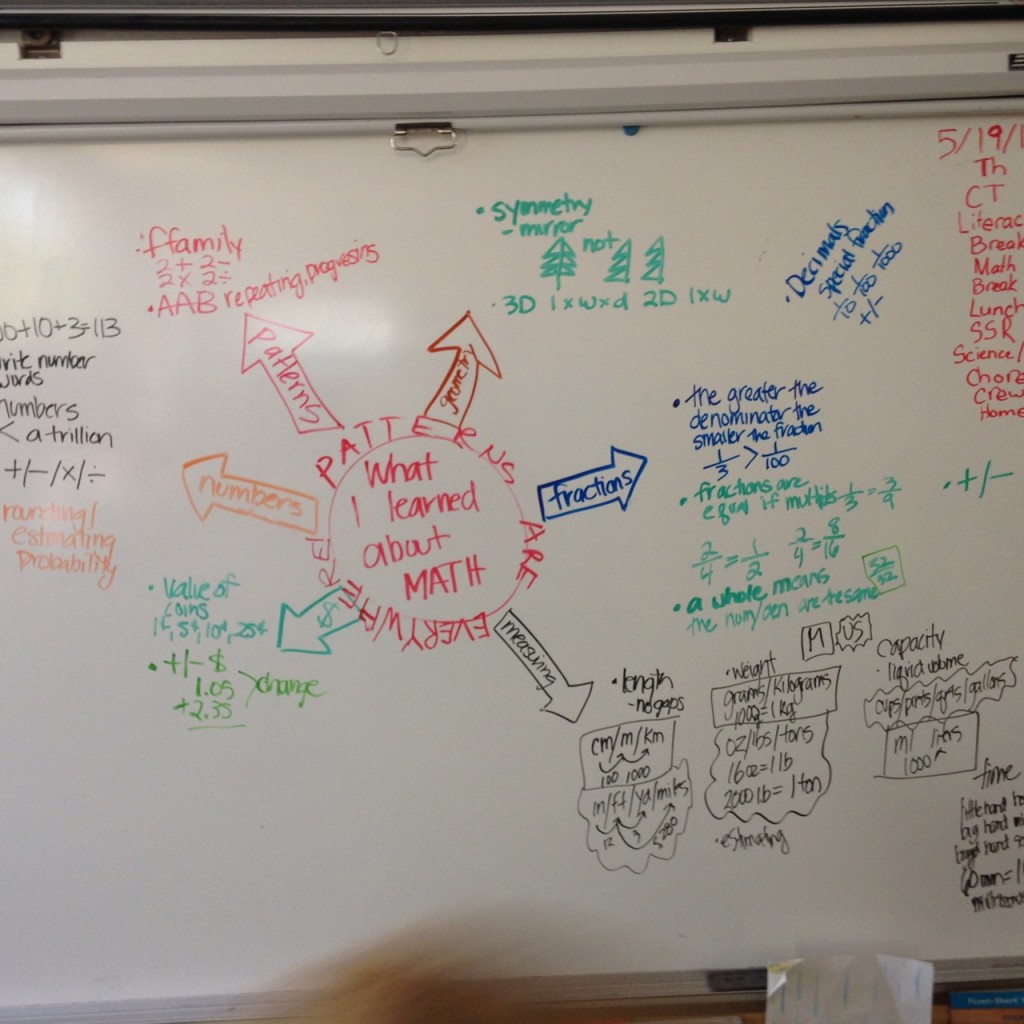 What
I learned
about
MATH
PATTERNS ARE EVERYWHERE
patterns
• ffamily
2+ 2-
2x 2÷
• AAB repeating, progressing
geometry
• symmetry
- mirror
not
• 3D l x w x d 2D l x w
• Decimals
special fraction
1/10 1/100 1/1000
+/-
fractions
• the greater the
denominator the
smaller the fraction
1/3 > 1/100
• fractions are
equal if multiples 1/3 = 3/9
2/4 = 1/2 2/4 = 8/16
• a whole means
the num/den are the same
52/52
• +/-
measuring
• length
- no gaps
cm/m/km
100 1000
in/ft/yd/miles
12 3 5280
• weight
grams/kilograms
1000g = 1kg
oz/lbs/tons
16oz = 1 lb
2000 lb = 1 ton
• estimating
M US
capacity
• liquid volume
cups/pints/qrts/gallons
ml liters
1000
time
little hand
big hand
hand
60 min = 1
$
• value of
coins
1¢, 5¢, 10¢, 25¢
• +/- $
1.05
+2.35
> change
numbers
00+10+3=113
number
words
numbers
< a trillion
+/-/x/÷
rounding/
estimating
probability
5/19/1
Th
CT
Literac
Break
Math
Break
Lunch
SSR
Science/
Chore
Crew
Home